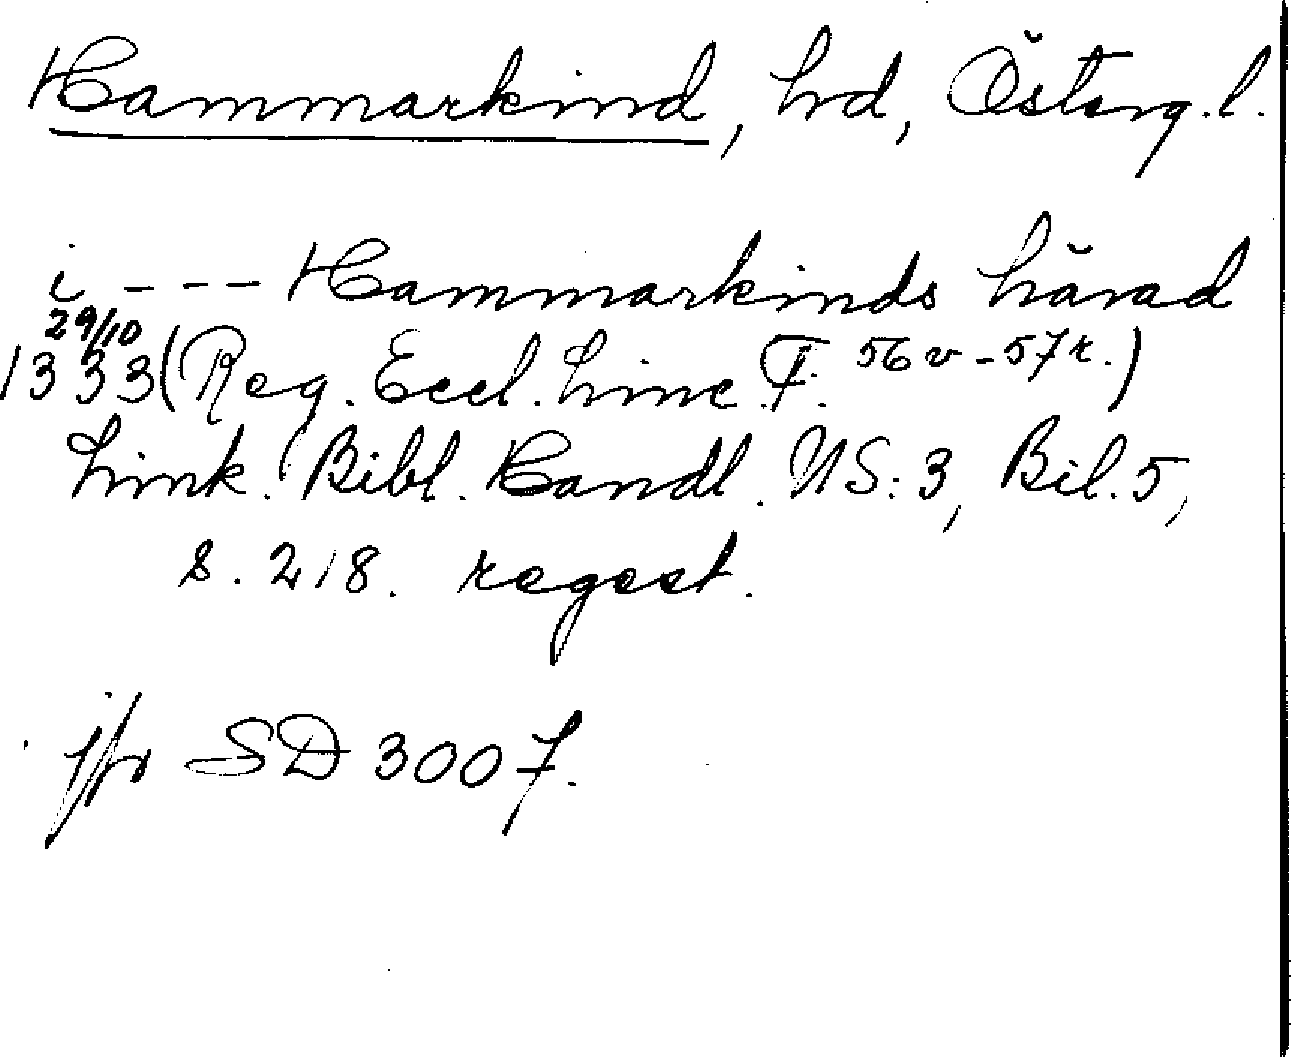 Hammarkind, hd, Österg.l.
i - - - Hammarkinds härad
29/10
1333 (Reg. Eccl. Linc. F. 56v-57r.)
Link. Bibl. Handl. NS: 3, Bil. 5,
s. 218. regest.
jfr SD 3007.